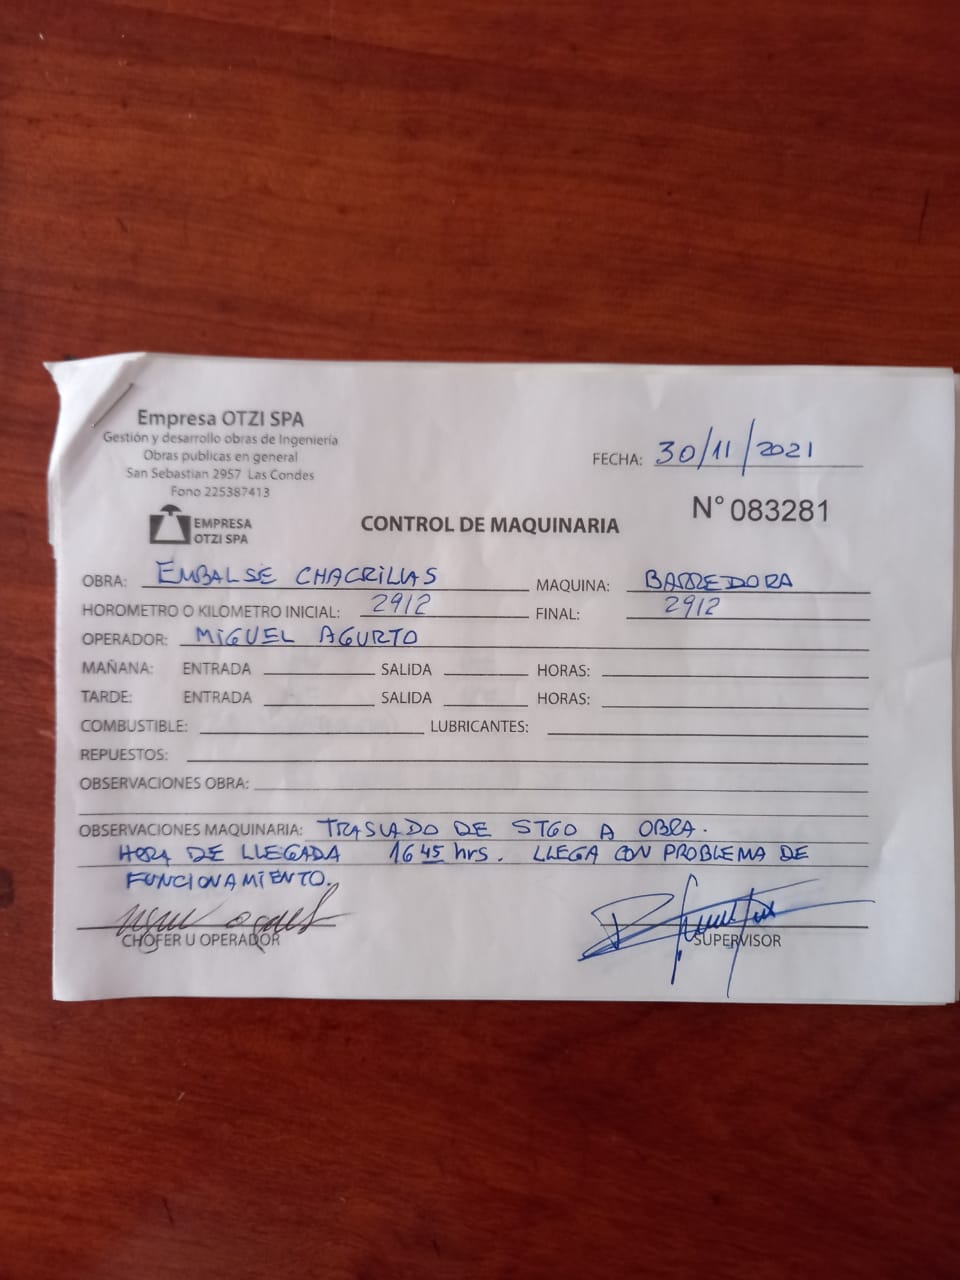 Empresa OTZI SPA
Gestión y desarrollo obras de Ingeniería
Obras publicas en general
San Sebastian 2957 Las Condes
Fono 225387413
EMPRESA
OTZI SPA
FECHA: 30/11/2021
CONTROL DE MAQUINARIA
N° 083281
OBRA: EMBALSE CHACRILLAS MAQUINA: BARREDORA
HOROMETRO O KILOMETRO INICIAL: 2912 FINAL: 2912
OPERADOR: MIGUEL AGURTO
MAÑANA: ENTRADA SALIDA HORAS:
TARDE: ENTRADA SALIDA HORAS:
COMBUSTIBLE: LUBRICANTES:
REPUESTOS:
OBSERVACIONES OBRA:
OBSERVACIONES MAQUINARIA: TRASLADO DE STGO A OBRA.
HORA DE LLEGADA 1645 hrs. LLEGA CON PROBLEMA DE
FUNCIONAMIENTO.
CHOFER U OPERADOR SUPERVISOR